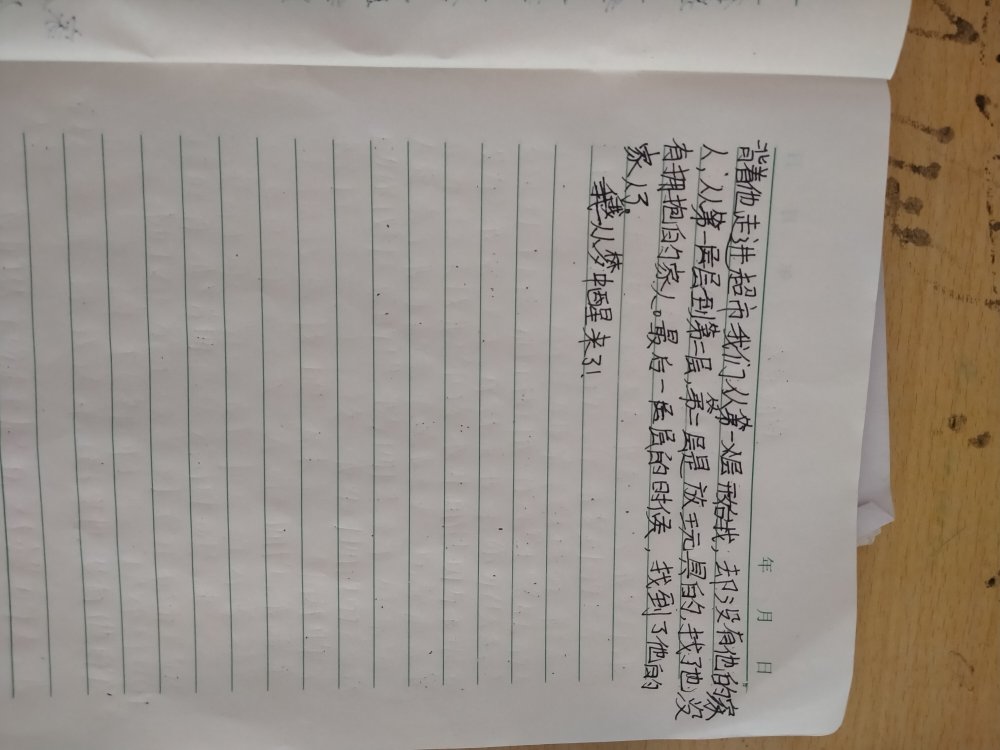 年 月 日
背着他走进超市我们从第一层开始找，却没有他的家
人，从第一层到第二层，第二层是放玩具的，找了他没
有拥抱的家人。最后一层的时候，找到了他的
家人了。
我从梦中醒来了！